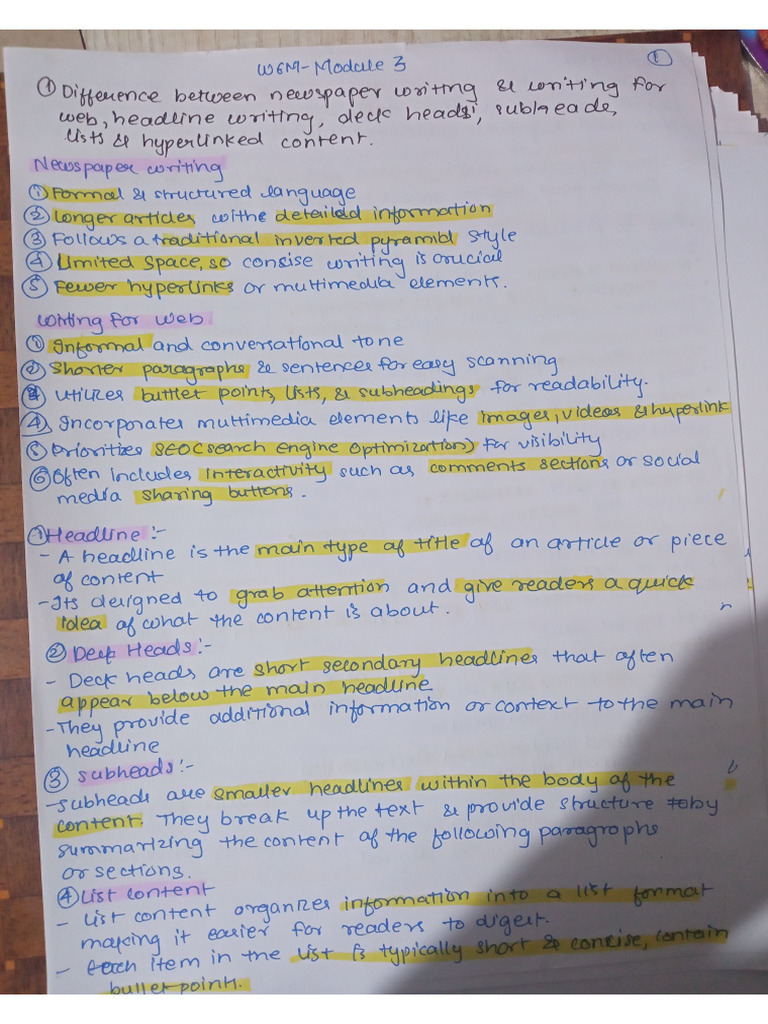 WGM-Module 3
1
① Difference between newspaper writing & writing for
web, headline writing, deck heads, subheads,
lists & hyperlinked content.
Newspaper writing
① Formal & structured language
② Longer articles withe detailed information
③ Follows a traditional inverted pyramid style
④ Limited space, so consise writing is crucial
⑤ Fewer hyperlinks or multimedia elements.
Writing for web
① Informal and conversational tone
② Shorter paragraphs & sentences for easy scanning
③ utilizes buttlet points, lists, & subheadings for readability.
④ Incorporates multimedia elements like images, videos & hyperlink
⑤ Prioritizes SEO(search engine optimization) for visibility
⑥ Often includes interactivity such as comments sections or social
media sharing buttons.
① Headline :-
- A headline is the main type of title of an article or piece
of content
- Its designed to grab attention and give readers a quick
idea of what the content is about.
② Deck Heads :-
- Deck heads are short secondary headlines that often
appear below the main headline
- They provide additional information or context to the main
headline
③ subheads :-
- subheads are smaller headlines within the body of the
content. They break up the text & provide structure by
summarizing the content of the following paragraphs
or sections.
④ List content
- List content organizes information into a list format
making it easier for readers to digest.
- Each item in the list is typically short & concise, contain
bullet points.